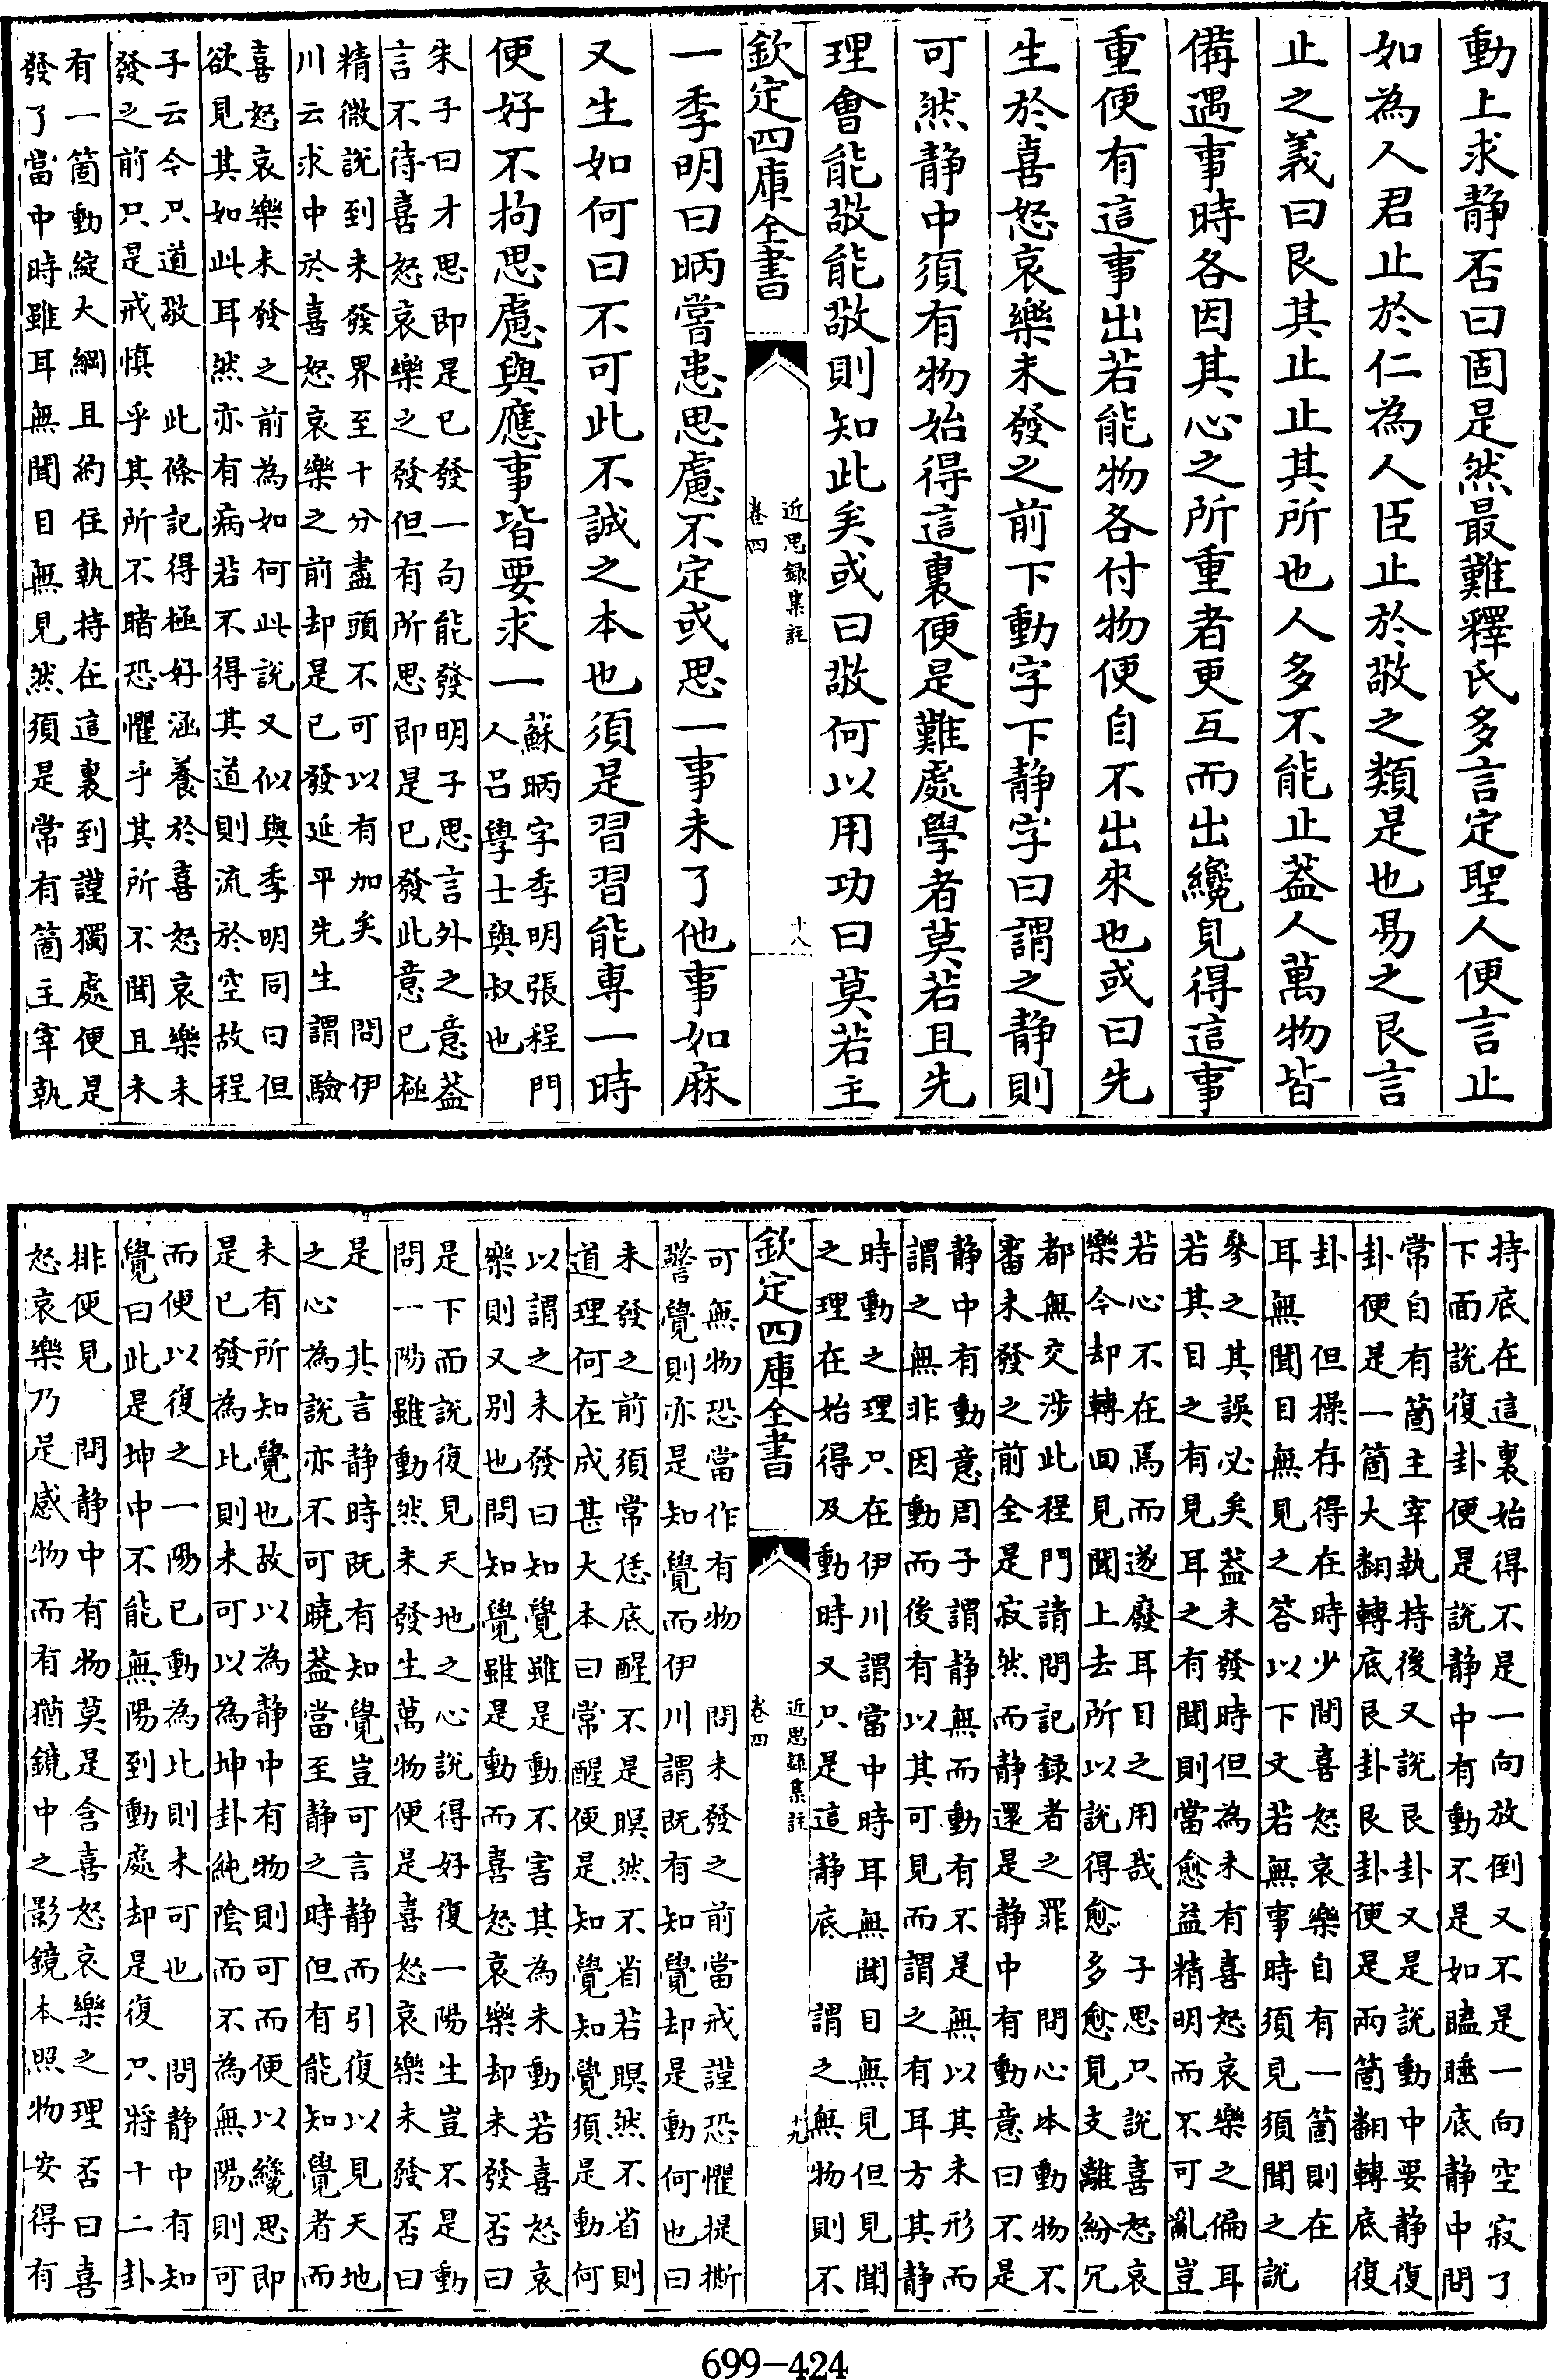 動上求静否曰固是然最難釋氏多言定聖人便言止
如為人君止於仁為人臣止於敬之類是也易之艮言
止之義曰艮其止止其所也人多不能止葢人萬物皆
備遇事時各因其心之所重者更互而出纔見得這事
重便有這事出若能物各付物便自不出來也或曰先
生於喜怒哀樂未發之前下動字下静字曰謂之静則
可然静中須有物始得這裏便是難處學者莫若且先
理會能敬能敬則知此矣或曰敬何以用功曰莫若主
欽定四庫全書
近思録集註
卷四
十八
一季明曰昞嘗患思慮不定或思一事未了他事如麻
又生如何曰不可此不誠之本也須是習習能專一時
便好不拘思慮與應事皆要求一
蘇昞字季明張程門
人呂學士與叔也
朱子曰才思即是已發一句能發明子思言外之意葢
言不待喜怒哀樂之發但有所思即是已發此意已極
精微說到未發界至十分盡頭不可以有加矣 問伊
川云求中於喜怒哀樂之前却是已發延平先生謂驗
喜怒哀樂未發之前為如何此說又似與季明同曰但
欲見其如此耳然亦有病若不得其道則流於空故程
子云今只道敬 此條記得極好涵養於喜怒哀樂未
發之前只是戒慎乎其所不睹恐懼乎其所不聞且未
有一箇動綻大綱且約住執持在這裏到謹獨處便是
發了當中時雖耳無聞目無見然須是常有箇主宰執
持底在這裏始得不是一向放倒又不是一向空寂了
下面說復卦便是說静中有動不是如瞌睡底静中間
常自有箇主宰執持後又說艮卦又是說動中要静復
卦便是一箇大翻轉底艮卦艮卦便是兩箇翻轉底復
卦 但操存得在時少間喜怒哀樂自有一箇則在
耳無聞目無見之答以下文若無事時須見須聞之說
參之其誤必矣葢未發時但為未有喜怒哀樂之偏耳
若其目之有見耳之有聞則當愈益精明而不可亂豈
若心不在焉而遂廢耳目之用哉 子思只說喜怒哀
樂今却轉回見聞上去所以說得愈多愈見支離紛冗
都無交涉此程門請問記録者之罪 問心本動物不
審未發之前全是寂然而静還是静中有動意曰不是
静中有動意周子謂静無而動有不是無以其未形而
謂之無非因動而後有以其可見而謂之有耳方其静
時動之理只在伊川謂當中時耳無聞目無見但見聞
之理在始得及動時又只是這静底 謂之無物則不
欽定四庫全書
近思録集註
卷四
十九
可無物恐當作有物 問未發之前當戒謹恐懼提撕
警覺則亦是知覺而伊川謂既有知覺却是動何也曰
未發之前須常恁底醒不是瞑然不省若瞑然不省則
道理何在成甚大本曰常醒便是知覺知覺須是動何
以謂之未發曰知覺雖是動不害其為未動若喜怒哀
樂則又别也問知覺雖是動而喜怒哀樂却未發否曰
是下而說復見天地之心說得好復一陽生豈不是動
問一陽雖動然未發生萬物便是喜怒哀樂未發否曰
是 其言静時既有知覺豈可言静而引復以見天地
之心為說亦不可曉葢當至静之時但有能知覺者而
未有所知覺也故以為静中有物則可而便以纔思即
是已發為比則未可以為坤卦純陰而不為無陽則可
而便以復之一陽已動為比則未可也 問静中有知
覺曰此是坤中不能無陽到動處却是復只將十二卦
排便見 問静中有物莫是含喜怒哀樂之理否曰喜
怒哀樂乃是感物而有猶鏡中之影鏡本照物安得有
699-424